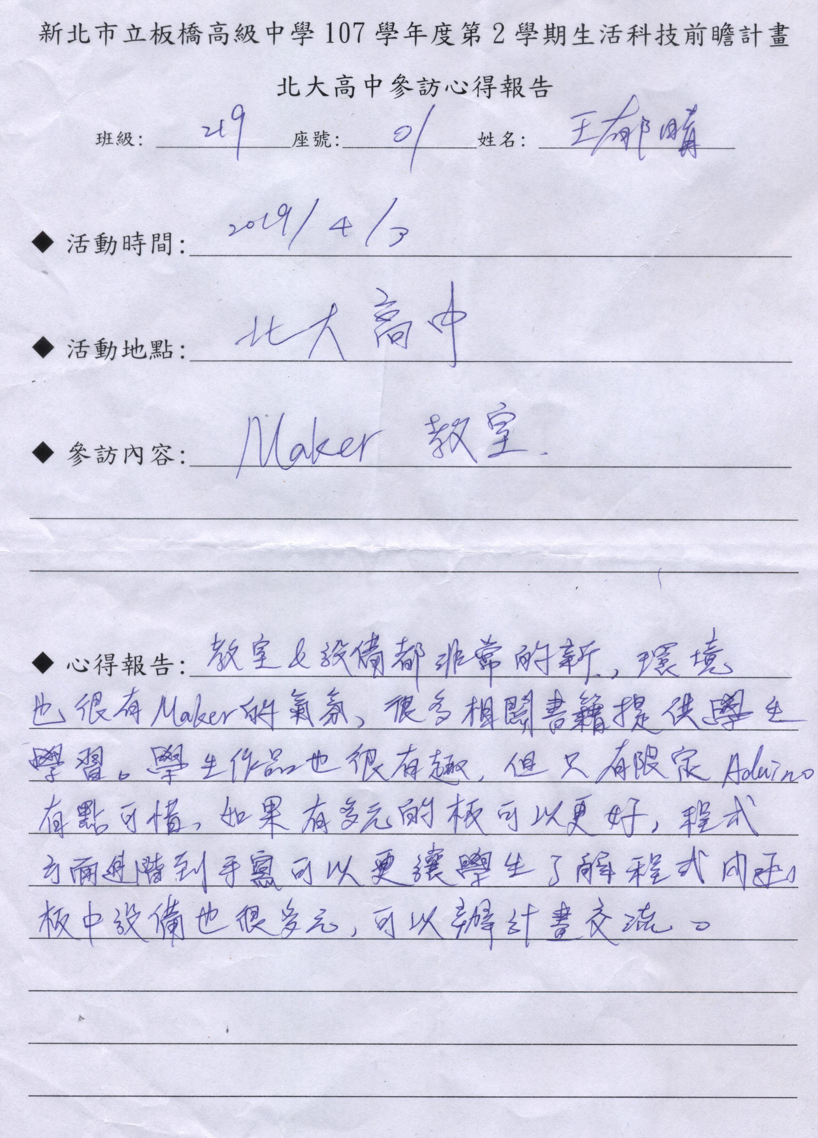 新北市立板橋高級中學 107 學年度第 2 學期生活科技前瞻計畫
北大高中參訪心得報告
班級: 219 座號: 01 姓名: 王郁晴
◆ 活動時間: 2019/4/3
◆ 活動地點: 北大高中
◆ 參訪內容: Maker 教室.
◆ 心得報告: 教室&設備都非常的新, 環境
也很有Maker的氣氛、很多相關書籍提供學生
學習。學生作品也很有趣, 但只有限定 Aduino
有點可惜。如果有多元的板可以更好, 程式
方面進階到手寫可以更讓學生了解程式
板中設備也很多元, 可以辦計畫交流。